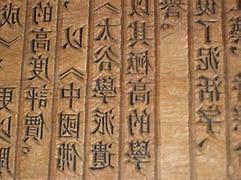 藝，
復了泥活字、
譽。
以其極高的學
《太谷學派遺
，以《中國佛
的高度評價。
成》，更以